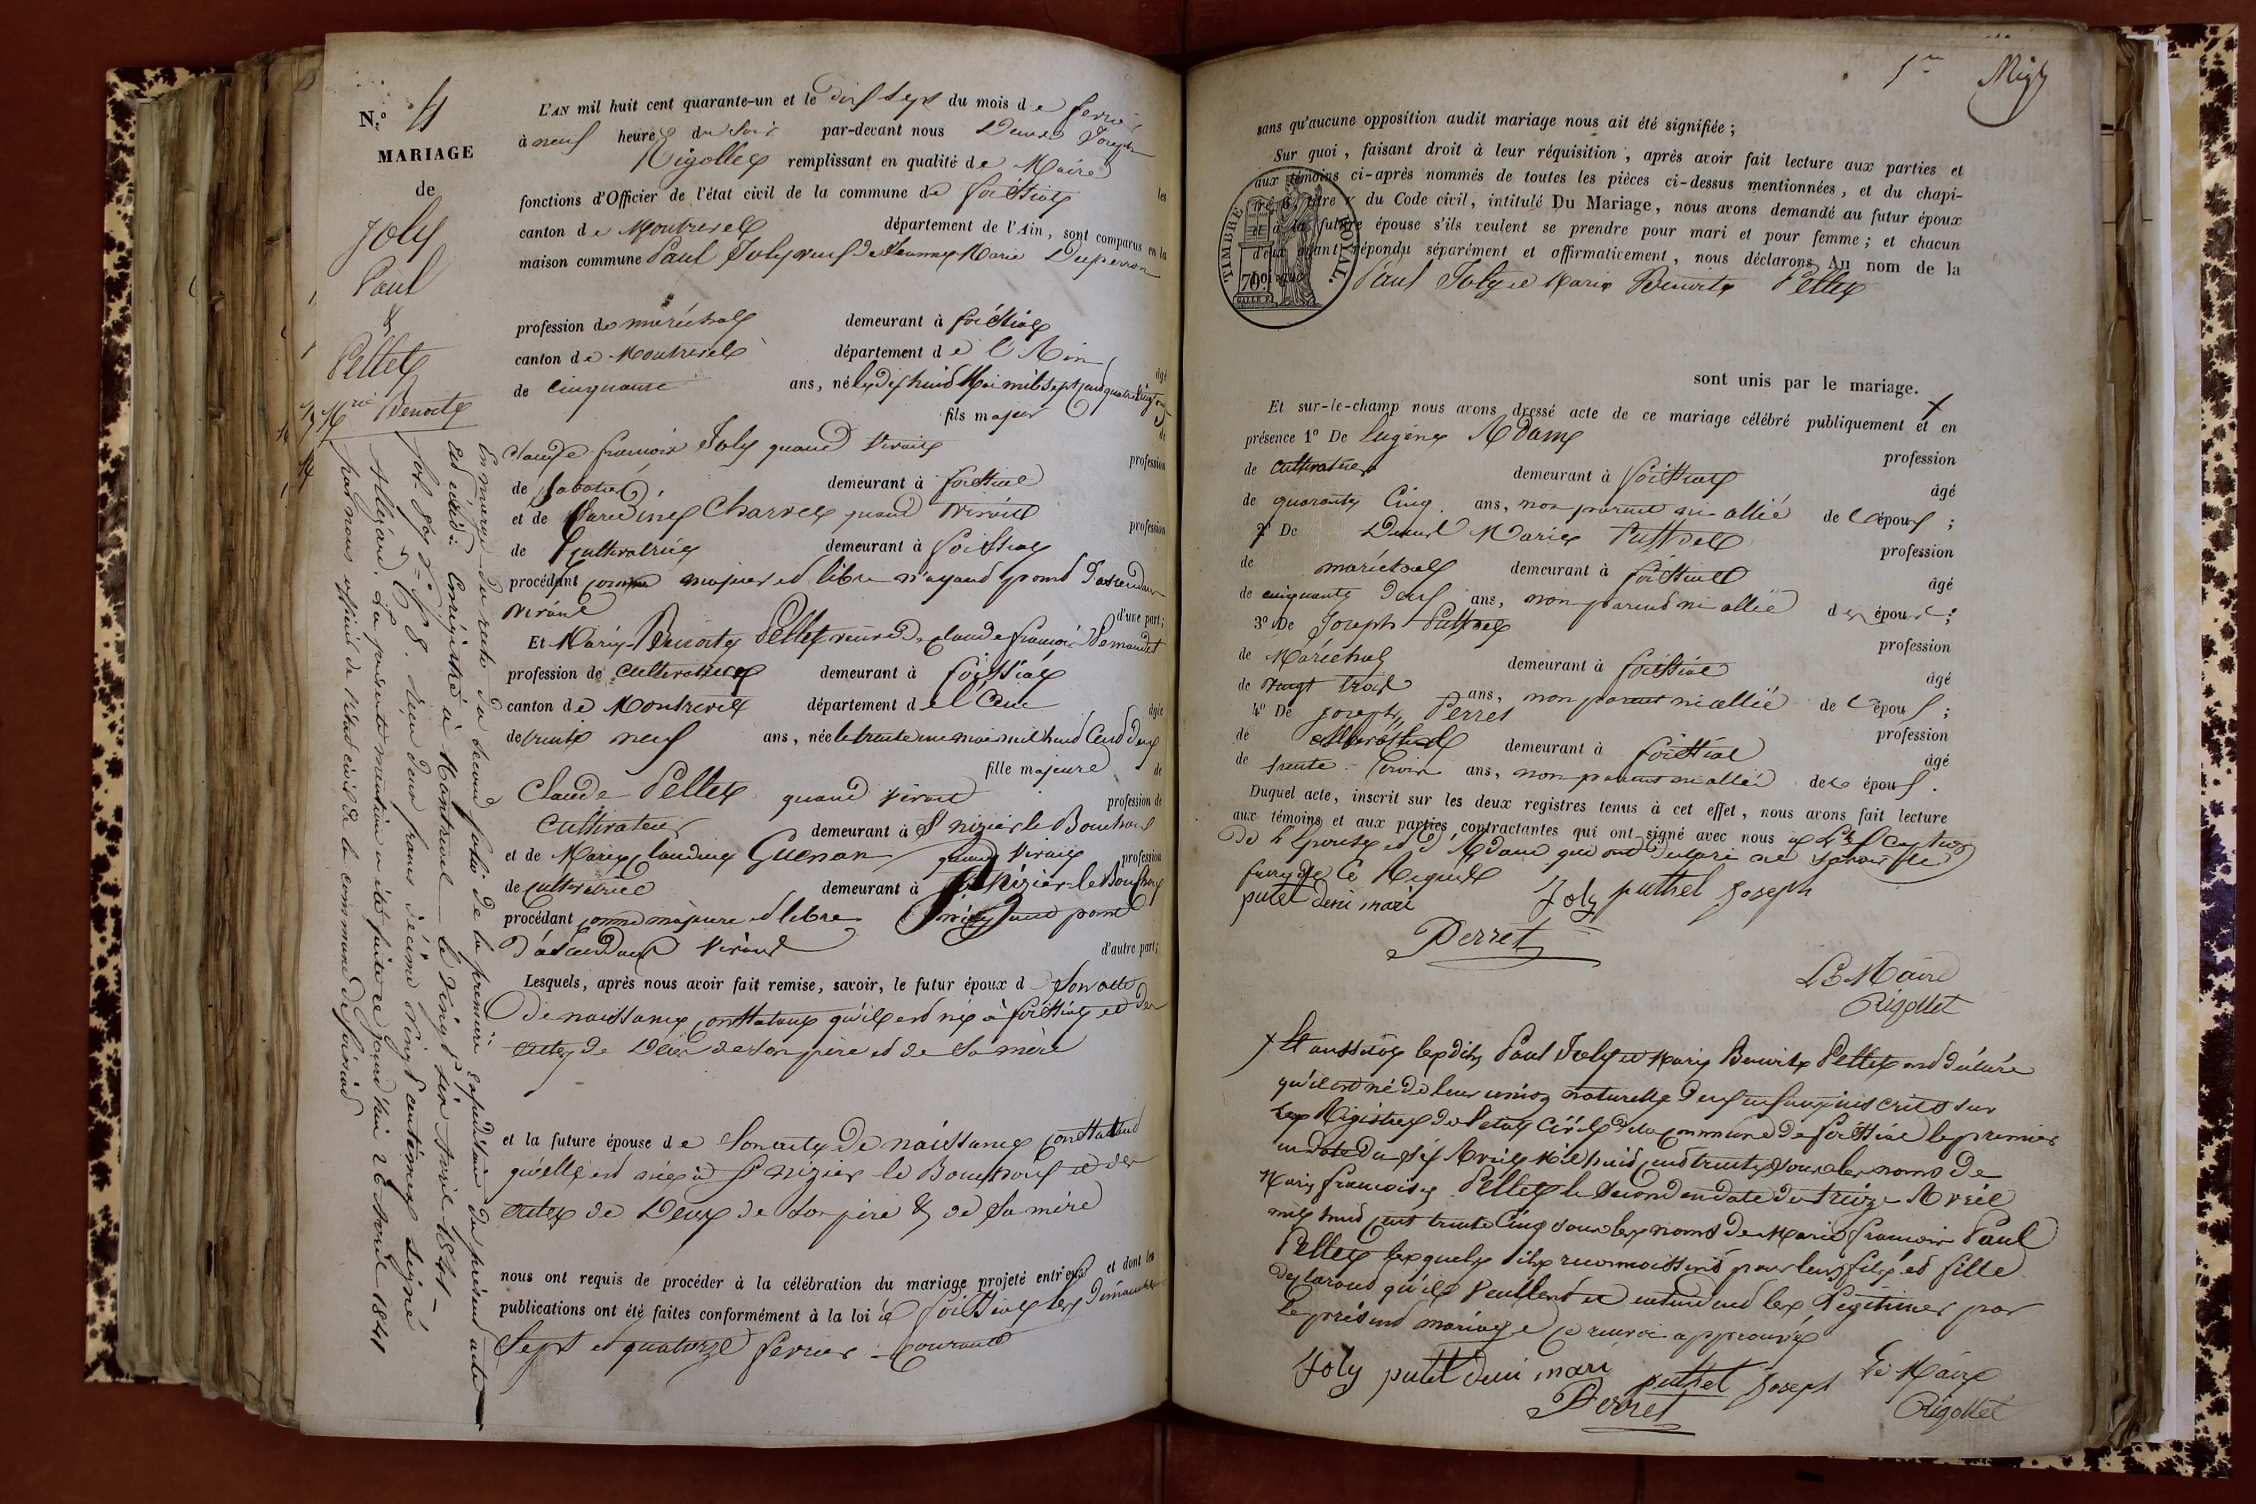 N.o 4
MARIAGE
de
Joly
Paul
&
Pellet
Mie Benoite
En marge du recto du second folio de la première expédition du présent acte
est écrit: Enrégistré à Montrevel le vingt six Avril 1841
fol 89 r° C 8. Reçu deux francs décime vingt centimes signé
Aligand. La présente mention a été faite ce jourd'hui 26 Avril 1841
par nous officier de l'état civil de la commune de foissiat
L'AN mil huit cent quarante-un et le dix sept du mois de fevrier
à neuf heures du soir par-devant nous Denis Joseph
Rigollet remplissant en qualité de Maire les
fonctions d'Officier de l'état civil de la commune de foissiat
canton de Montrevel département de l'Ain, sont comparus en la
maison commune Paul Joly veuf de Jeanne Marie Duperron
profession de maréchal demeurant à foissiat
canton de Montrevel département de l'Ain âgé
de cinquante ans, né le dix huit Mai mil sept cent quatre vingt
fils majeur de
Claude francois Joly quand vivait profession
de sabotier demeurant à foissiat
et de Claudine Charvet quand vivait profession
de Cultivatrice demeurant à foissiat
procédant comme majeur et libre n'ayant point d'ascendant
vivant d'une part;
Et Marie Benoite Pellet veuve de Claude francois
profession de cultivatrice demeurant à foissiat
canton de Montrevel département de l'Ain âgée
de trente neuf ans, née le trente un mai mil huit Cent deux
fille majeure de
Claude Pellet quand vivait profession de
cultivateur demeurant à St nizier le Bouchoux
et de Marie Claudine Guenon quand vivait profession
de cultivatrice demeurant à St Nizier le Bouchoux
procédant comme majeure et libre n'ayant point
d'ascendant vivant d'autre part;
Lesquels, après nous avoir fait remise, savoir, le futur époux de Son acte
de naissance constatant qu'il est né à foissiat et des
actes de Décès de son père et de Sa mère
et la future épouse de Son acte de naissance constatant
qu'elle est née à St nizier le Bouchoux et des
actes de Décès de son père & de Sa mère
nous ont requis de procéder à la célébration du mariage projeté entr'eux et dont les
publications ont été faites conformément à la loi à foissiat les dimanches
Sept et quatorze fevrier Courant
1er Migt
sans qu'aucune opposition audit mariage nous ait été signifiée;
Sur quoi, faisant droit à leur réquisition, après avoir fait lecture aux parties et
aux témoins ci-après nommés de toutes les pièces ci-dessus mentionnées, et du chapi-
tre 6, titre v du Code civil, intitulé Du Mariage, nous avons demandé au futur époux
et à la future épouse s'ils veulent se prendre pour mari et pour femme; et chacun
d'eux ayant répondu séparément et affirmativement, nous déclarons Au nom de la
loi que Paul Joly et Marie Benoite Pellet
TIMBRE ROYAL
70c
sont unis par le mariage.
Et sur-le-champ nous avons dressé acte de ce mariage célébré publiquement et en
présence 1° De Eugène Adam profession
de cultivateur demeurant à foissiat âgé
de quarante Cinq ans, non parent ni allié de l'époux;
2° De Denis Marie Puthet profession
de maréchal demeurant à foissiat âgé
de cinquante deux ans, non parent ni allié des époux;
3° De Joseph Puthet profession
de Maréchal demeurant à foissiat âgé
de vingt trois ans, non parent ni allié de l'époux;
4° De Joseph Perret profession
de demeurant à foissiat âgé
de trente trois ans, non parent ni allié de l'époux.
Duquel acte, inscrit sur les deux registres tenus à cet effet, nous avons fait lecture
aux témoins et aux parties contractantes qui ont signé avec nous à l'exception
de l'Epouse et d'Adam qui ont déclaré ne savoir le
faire de ce Requis
putet deni mari Joly puthet Joseph
Perret
Le Maire
Rigollet
+ Et aussitôt lesdits Paul Joly et Marie Benoite Pellet ont déclaré
qu'il est né de leur union naturelle deux enfans inscrits sur
les Régistres de l'etat Civil de la commune de foissiat le premier
en date du six Avril Mil huit cent trente sous les noms de
Marie francoise Pellet le second en date du treize Avril
mil huit cent trente Cinq sous les noms de Marie francois Paul
Pellet lesquels ils reconnoissent pour leurs fils et fille
déclarant qu'ils veullent et entendent les Légitimer par
le présent mariage ce renvoi approuvé
Joly putet deni mari puthet Joseph Le Maire
Perret Rigollet